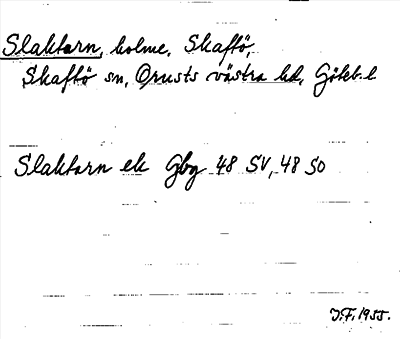 Slaktarn, holme, Skaftö,
Skaftö sn, Orusts västra hd, Göteb. l
Slaktarn ek Gbg 48 SV, 48 SO
J.F. 1955.